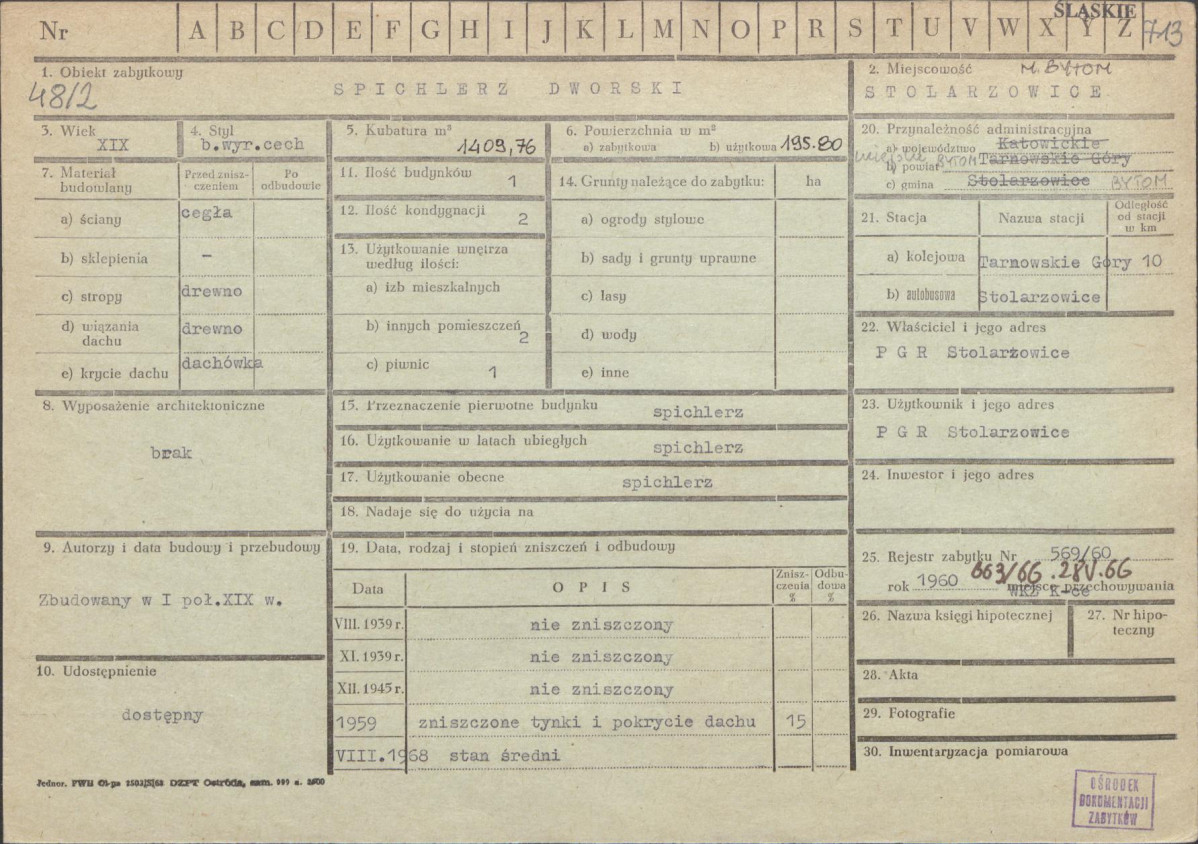 ŚLĄSKIE
Nr A B C D E F G H I J K L M N O P R S T U V W X Y Z 713
1. Obiekt zabytkowy
48/2
SPICHLERZ DWORSKI
2. Miejscowość M. BYTOM
STOLARZOWICE
3. Wiek
XIX
4. Styl
b.wyr.cech
5. Kubatura m³
1409,76
6. Powierzchnia w m²
a) zabytkowa b) użytkowa 195.80
20. Przynależność administracyjna
a) województwo Katowickie
miejskie BYTOM
b) powiat Tarnowskie Góry
c) gmina Stolarzowice BYTOM
7. Materiał budowlany
Przed zniszczeniem
Po odbudowie
a) ściany cegła
b) sklepienia –
c) stropy drewno
d) wiązania dachu drewno
e) krycie dachu dachówka
11. Ilość budynków 1
12. Ilość kondygnacji 2
13. Użytkowanie wnętrza
według ilości:
a) izb mieszkalnych
b) innych pomieszczeń 2
c) piwnic 1
14. Grunty należące do zabytku: ha
a) ogrody stylowe
b) sady i grunty uprawne
c) lasy
d) wody
e) inne
21. Stacja Nazwa stacji Odległość od stacji w km
a) kolejowa Tarnowskie Góry 10
b) autobusowa Stolarzowice
22. Właściciel i jego adres
P G R Stolarzowice
8. Wyposażenie architektoniczne
brak
15. Przeznaczenie pierwotne budynku spichlerz
16. Użytkowanie w latach ubiegłych spichlerz
17. Użytkowanie obecne spichlerz
18. Nadaje się do użycia na
23. Użytkownik i jego adres
P G R Stolarzowice
24. Inwestor i jego adres
9. Autorzy i data budowy i przebudowy
Zbudowany w I poł.XIX w.
10. Udostępnienie
dostępny
19. Data, rodzaj i stopień zniszczeń i odbudowy
Data OPIS Zniszczenia % Odbudowa %
VIII. 1939 r. nie zniszczony
XI. 1939 r. nie zniszczony
XII. 1945 r. nie zniszczony
1959 zniszczone tynki i pokrycie dachu 15
VIII.1968 stan średni
25. Rejestr zabytku Nr 569/60
663/66 . 28V.66
rok 1960 miejsce przechowywania
WKZ K-ce
26. Nazwa księgi hipotecznej
27. Nr hipoteczny
28. Akta
29. Fotografie
30. Inwentaryzacja pomiarowa
DZPT Ostróda, zam. 999 n. 2600
OŚRODEK
DOKUMENTACJI
ZABYTKÓW